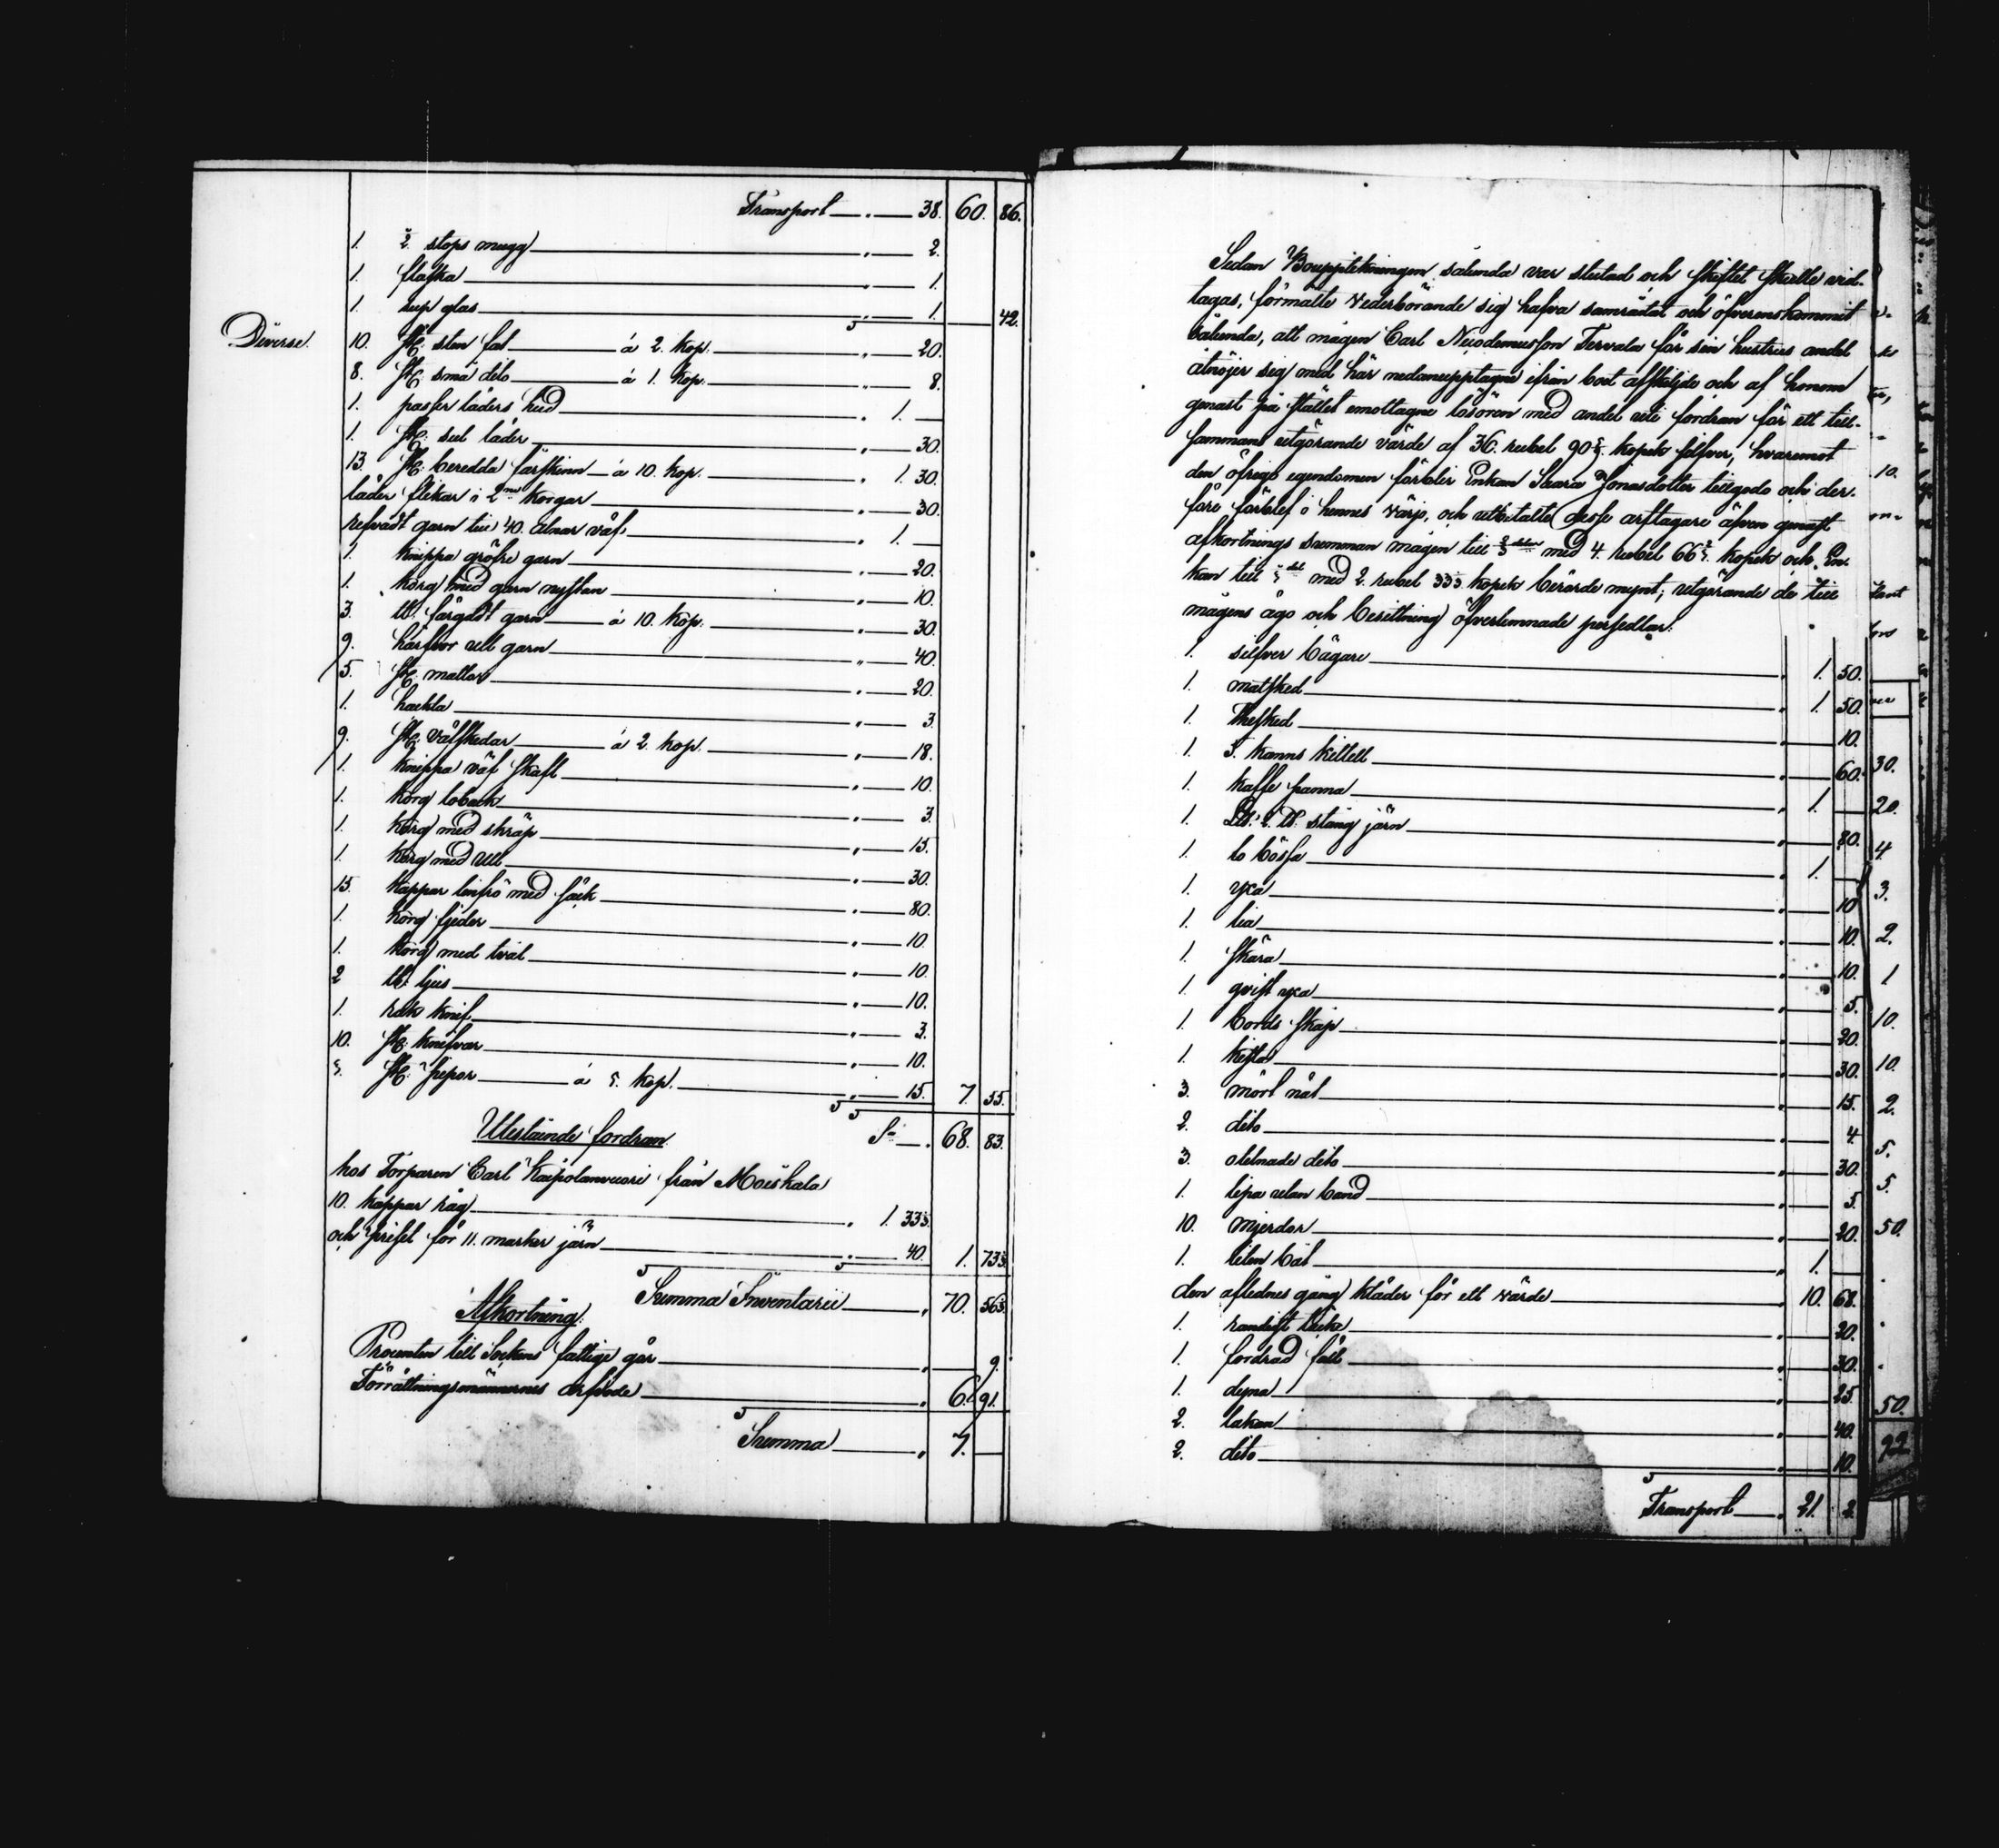 Transport — " — 38. 60. 86.
1. ½ stops mugg — " — 2.
1. flaska — " — 1
1. sup glas — " — 1. 42.
Diverse. 10. st: sten fat — á 2. kop. — " — 20.
8. st: små dito — á 1. kop. — " — 8.
1. läders hud — " 1. —
1. st: sul läder — " — 30.
13. st: beredda fårskinn — á 10. kop. — " 1. 30.
läder flikar i 2ne korgar — " — 30.
refvadt garn till 40. alnar väf — " 1. —
1. knippa gröfre garn — " — 20.
1. korg med garn nystan — " — 10.
3. ℔: färgadt garn — á 10. kop: — " — 30.
9. härfvor ull garn — " — 40.
5. st: mattor — " — 20.
1. hackla — " — 3.
9. st: väfskedar — á 2. kop. — " — 18.
1. knippa väf skaft — " — 10.
1. korg toback — " — 3.
1. korg med skräp — " — 15.
1. korg med ull — " — 30.
15. kappar linfrö med säck — " — 80.
1. korg fjeder — " — 10.
1. korg med tvål — " — 10.
2 ℔: ljus — " — 10.
1. rak knif — " — 3.
10. st: knifvar — " — 10.
5. st: pipor — á 3. kop. — " — 15. 7. 55.
Utestående fordran. Sa — " 68. 83.
hos Torparen Carl Kaipolanvuori från Moiskala
10. kappar råg — " 1. 33⅓
och priset för 11. marker järn — " — 40. 1. 73⅓
Summa Inventarii — " 70. 56⅓
Afkortning.
Procenten till Sockens fattige gör — " — 9.
Förrättningsmännernes arfvode — " 6. 91.
Summa — " 7. —
Sedan Bouppteckningen sålunda var slutad och skiftet skulle vid-
tagas, förmälte Vederbörande sig hafva samrådat och öfverenskommit
sålunda, att mågen Carl Nicodemusson Tervala för sin hustrus andel
åtnöjer sig med här nedanupptagne ifrån boet afskiljde och af honom
genast på stället emottagne lösören med andel uti fordran för ett till-
sammans utgörande värde af 36. rubel 90⅔ kopek silfver, hvaremot
den öfriga egendomen förblir Enkan Saara Jonasdotter tillgodo och der-
före förblef i hennes värjo, och utbetalte desse arftagare äfven genast
afkortnings summan mågen till ⅔ delar med 4. rubel 66⅔ kopek och En-
kan till ⅓ del med 2. rubel 33⅓ kopek berörde mynt; utgörande de till
mågens ägo och besittning öfverlemnade persedlar:
1. silfver bägare — " 1. 50.
1. matsked — " 1 50.
1. thesked — " — 10.
1. 3. kanns kittell — " — 60.
1. kaffe panna — " 1. —
1. L℔: 2. ℔: stång järn — " — 80.
1. lo bössa — " 1. —
1. yxa — " — 10
1. lia — " — 10.
1. skära — " — 10.
1. qvist yxa — " — 5.
1. bords skåp — " — 20.
1. kista — " — 30.
3. mört nät — " — 15.
2. dito — " — 4.
3. dito — " — 30.
1. lipa utan band — " — 5.
10. mjerdor — " — 20.
1. liten båt — " 1. —
den aflednes gång kläder för ett värde — " 10. 68.
1. randigt täcke — " — 20.
1. fodrad fäll — " — 30.
1. dyna — " — 25
2. lakan — " — 40.
2. dito — " — 10.
Transport — " 21. 2